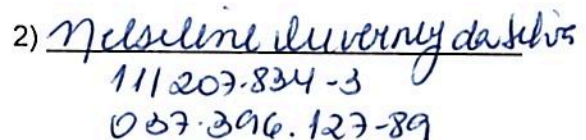 2) Nelseline Duverney da Silva
111207.834-3
037.396.127-89